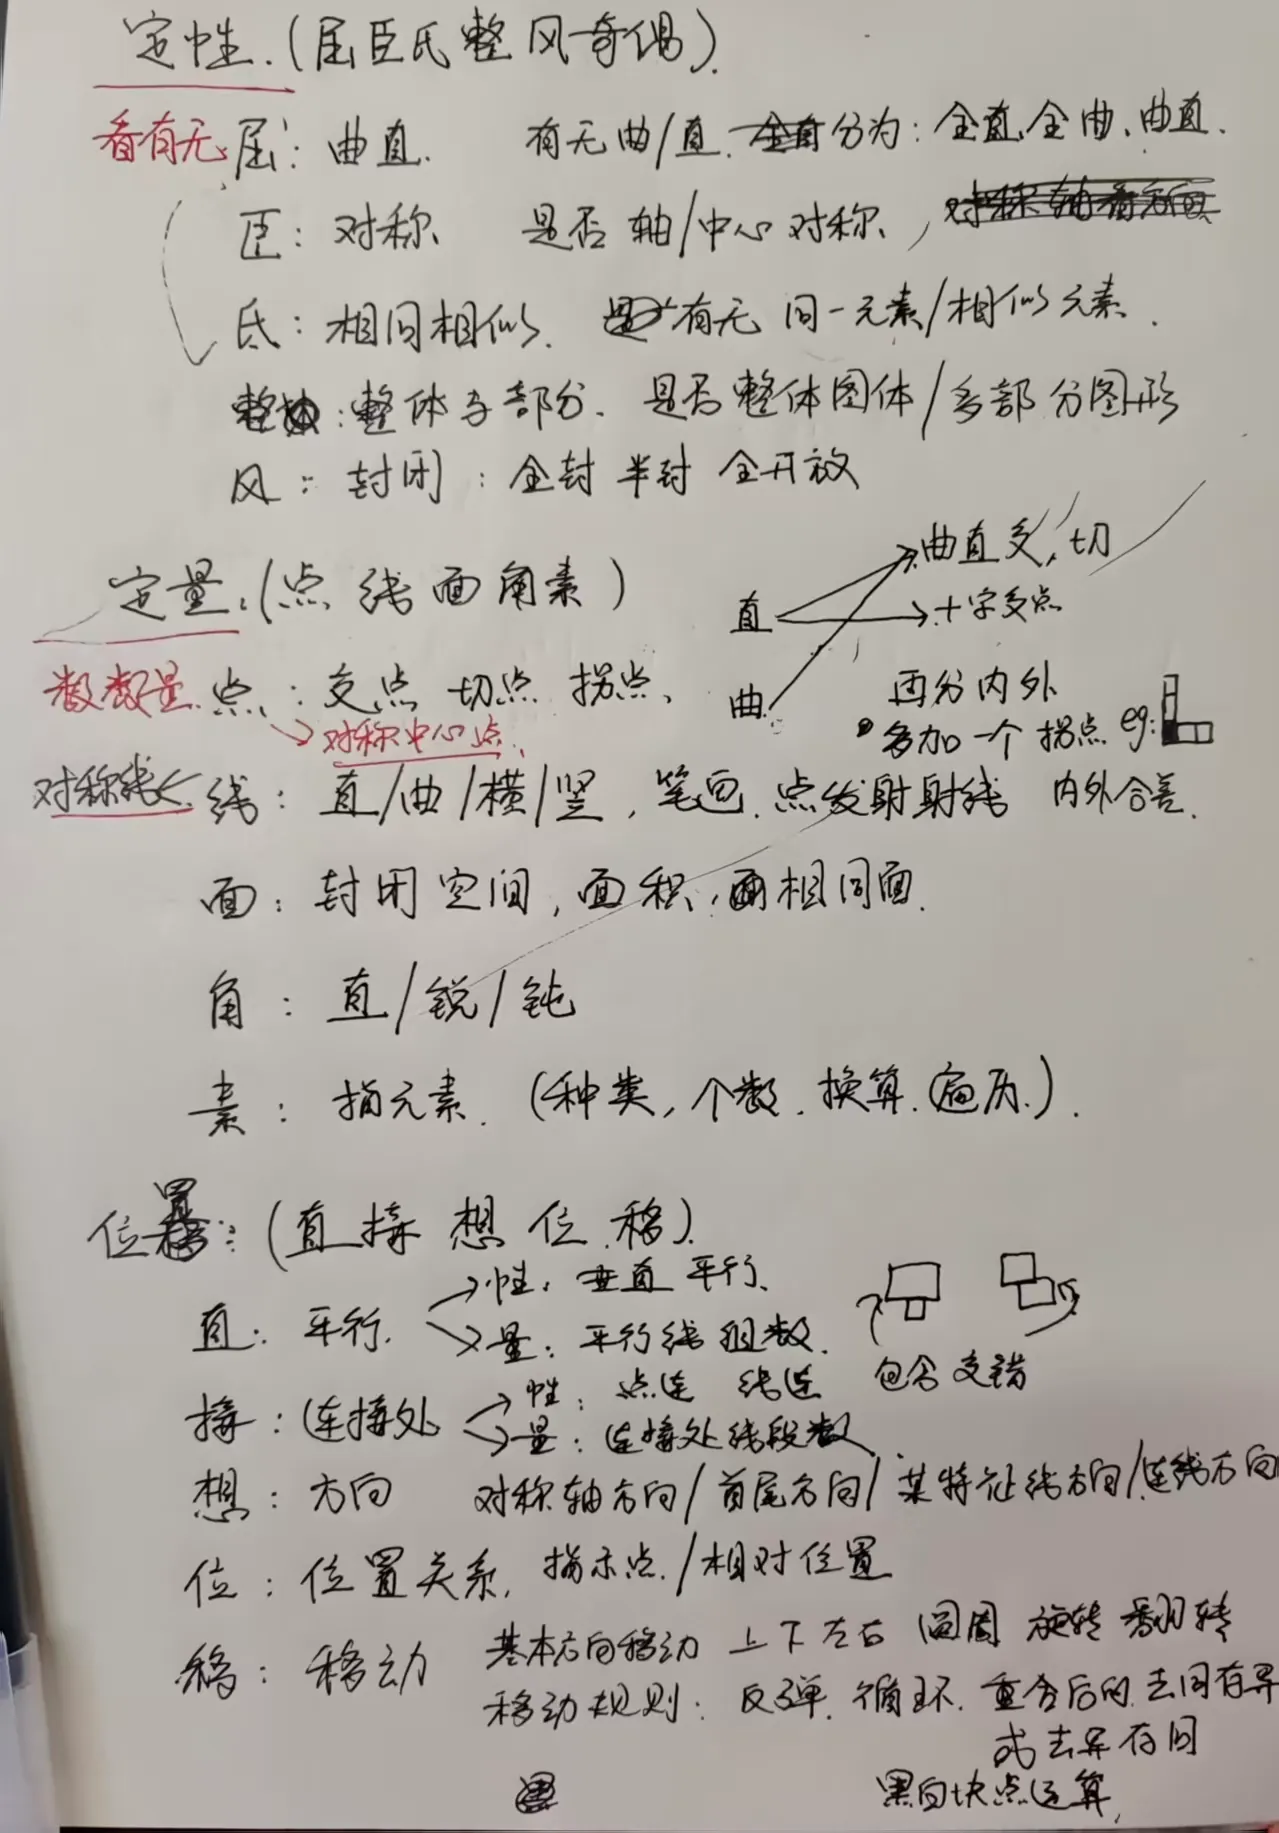 定性.(屈臣氏整风奇偶).
看有无 屈: 曲直. 有无曲/直. 分为: 全直.全曲.曲直.
臣: 对称. 是否轴/中心对称,
氏: 相同相似. 有无同一元素/相似元素.
整: 整体与部分. 是否整体图体/多部分图形
风: 封闭: 全封 半封 全开放
定量.(点线面角素)
直 曲直交,切
十字交点
曲
数数量. 点: 交点 切点 拐点.
对称中心点.
再分内外
多加一个拐点 eg:
对称线 线: 直/曲/横/竖, 笔画. 点发射射线 内外合差.
面: 封闭空间, 面积, 相同面.
角: 直/锐/钝
素: 指元素. (种类, 个数. 换算. 遍历.).
位置: (直接想位移).
直: 平行.
性: 垂直 平行.
量: 平行线组数.
包含 交错
接: 连接处
性: 点连 线连
量: 连接处线段数
想: 方向 对称轴方向/首尾方向/某特征线方向/连线方向
位: 位置关系. 指示点./相对位置
移: 移动 基本方向移动 上下左右 圆周 旋转 翻转
移动规则: 反弹. 循环. 重合后的 去同存异
或去异存同
黑白块点运算,